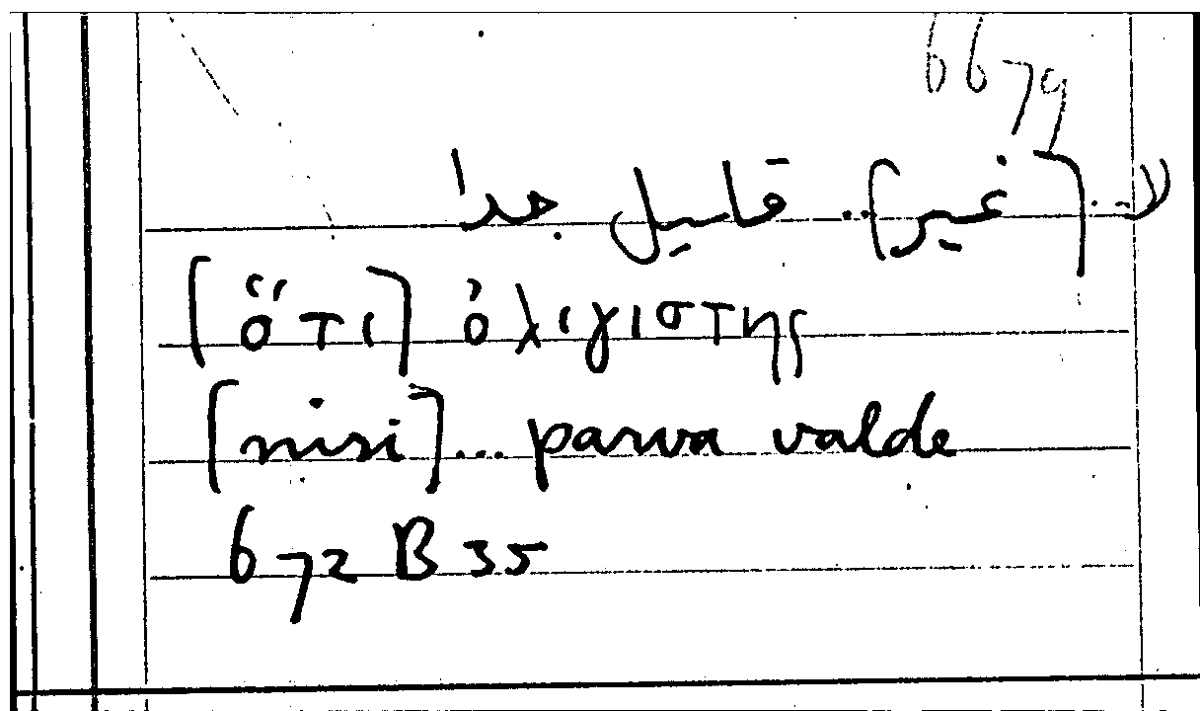 6679
لا .. [غير] .. قليل جدا
[ὅτι] ὀλιγιστης
[nisi] ... parva valde
672 B 35